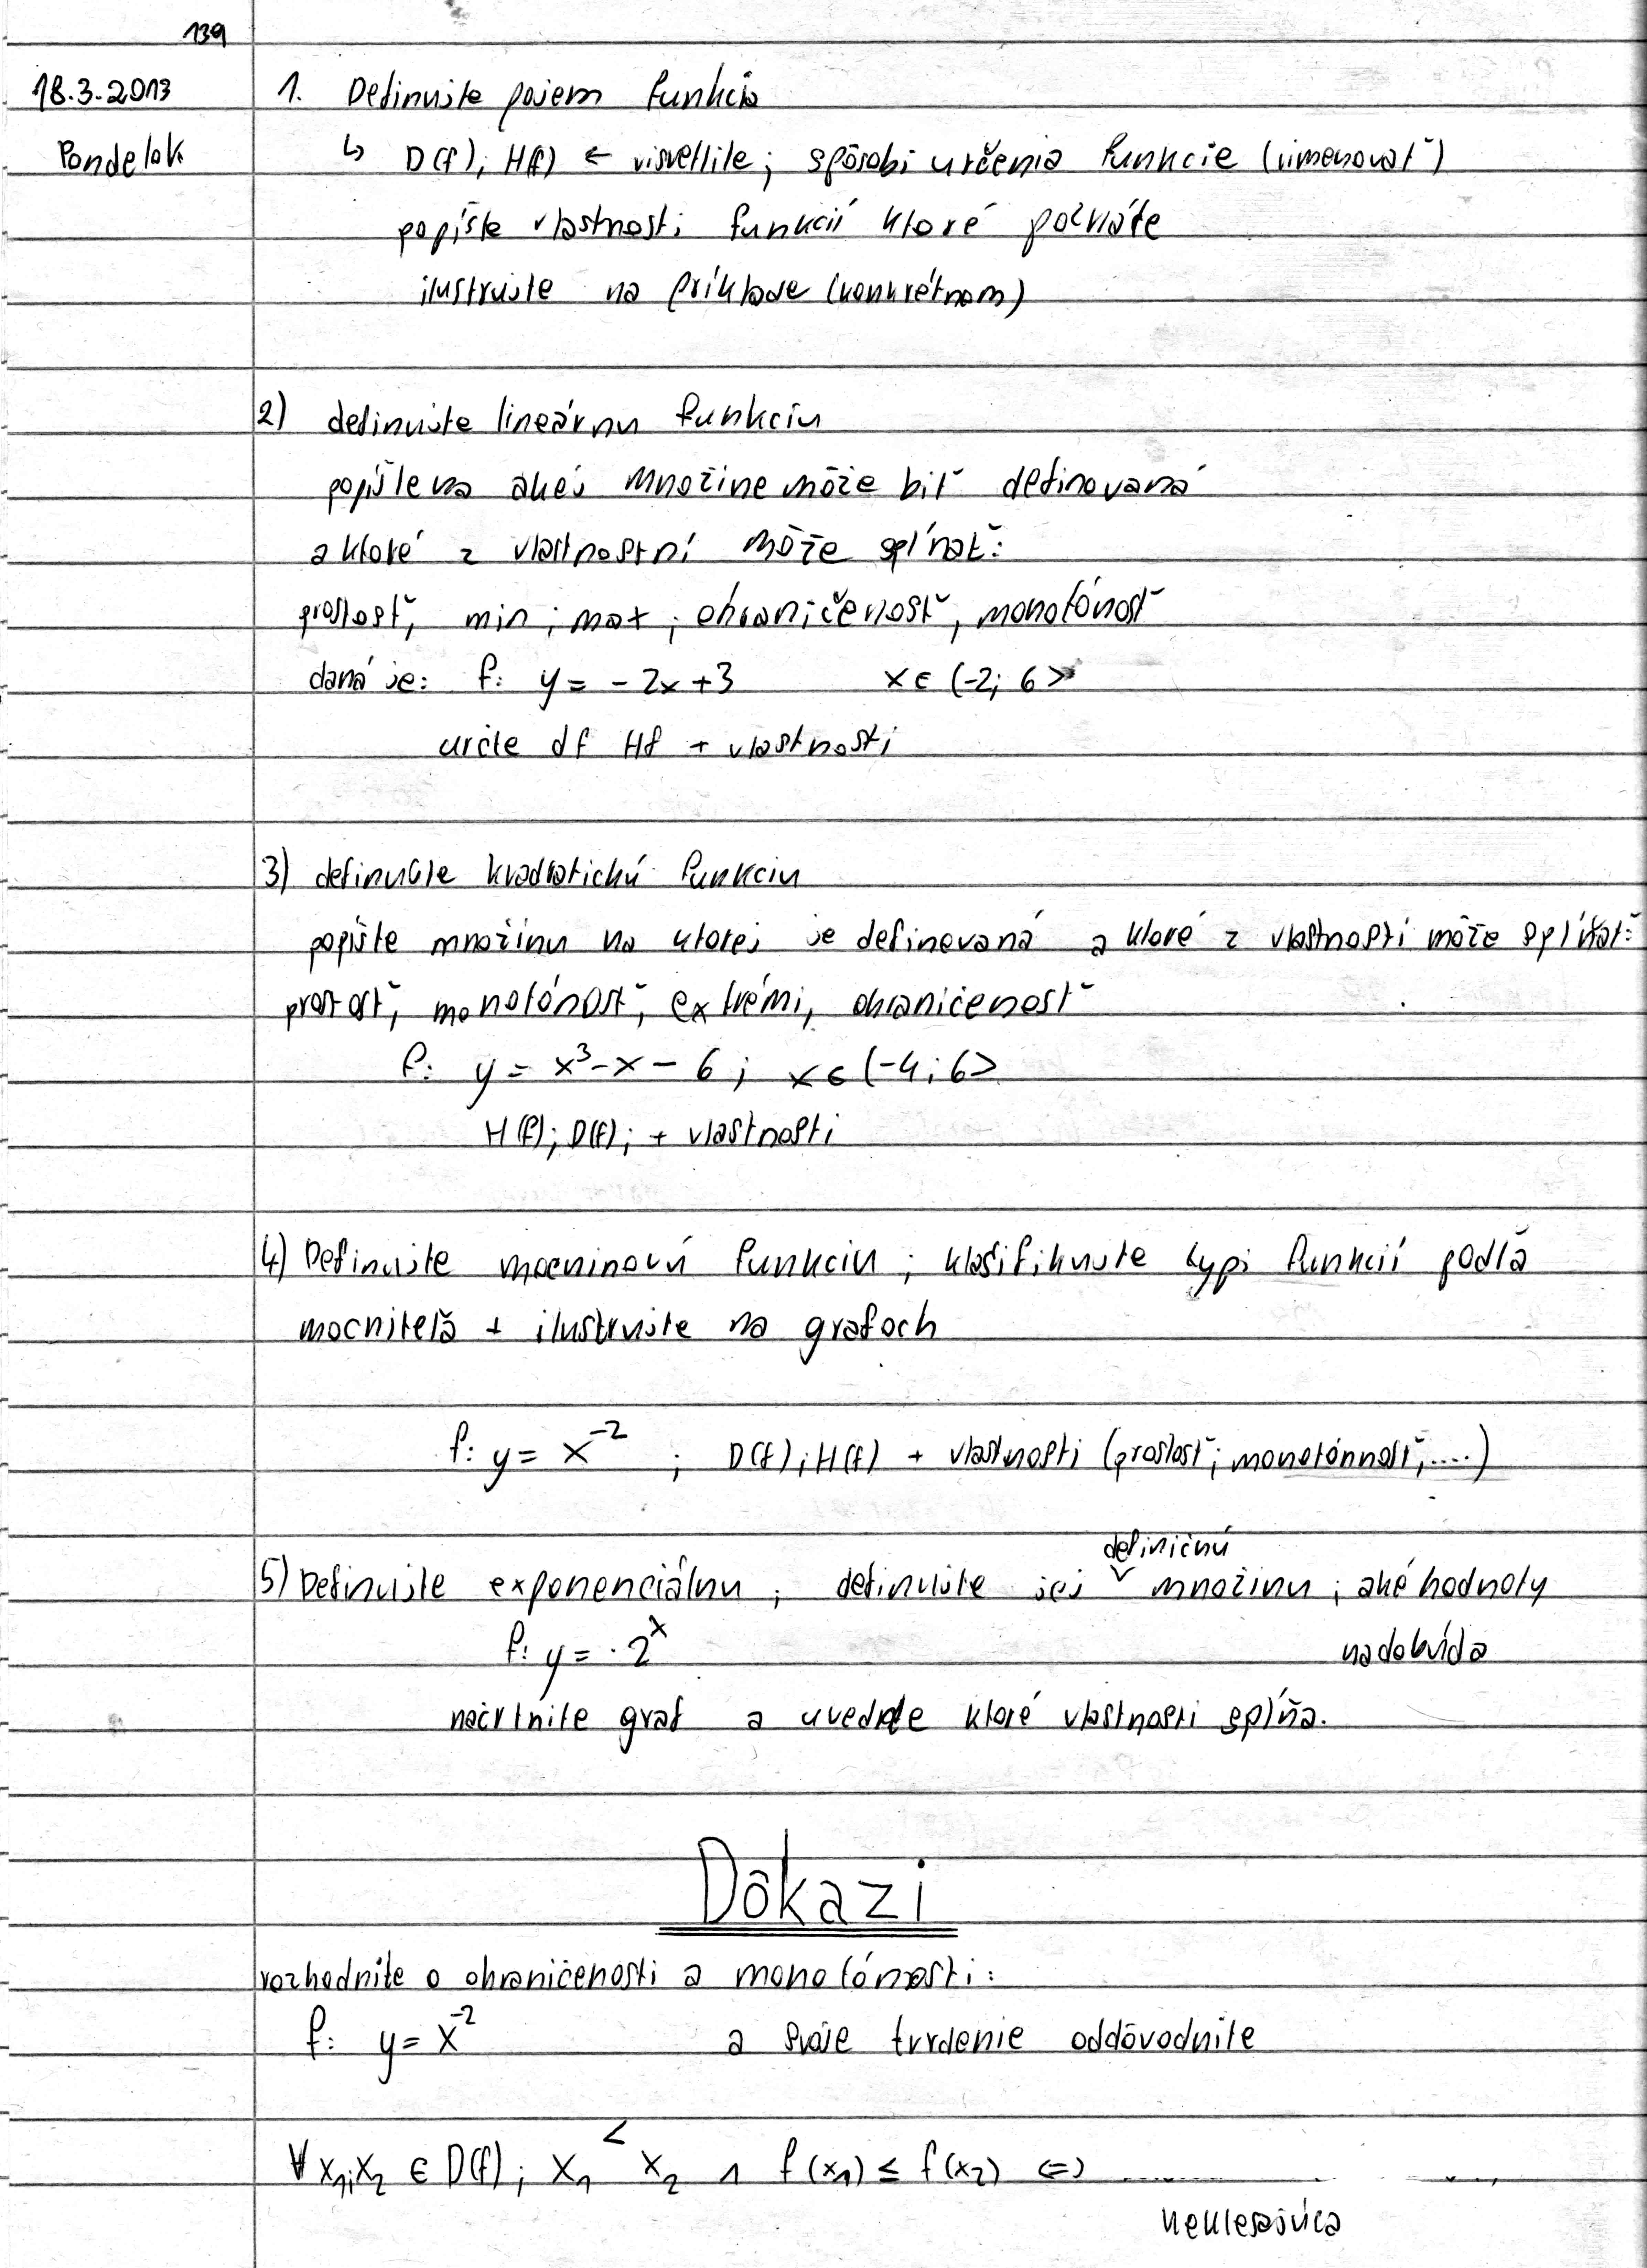 139
18.3.2013
Pondelok
1. Definujte pojem funkcia
↳ D(f); H(f) ← visvetlite; spôsobi určenia funkcie (vimenovať)
popíšte vlastnosti funkcií ktoré poznáte
ilustrujte na príklade (konkrétnom)
2) definujte lineárnu funkciu
popíšte na akej množine môže biť definovaná
a ktoré z vlastnostní môže spĺnať:
prostosť, min; max; ohraničenosť, monotónosť
daná je: f: y = -2x+3 x∈ (-2; 6>
určte df Hf + vlastnosti
3) definujte kvadratickú funkciu
popíšte množinu na ktorej je definovaná a ktoré z vlastností môže spĺňať:
prostosť, monotónosť, extrémi, ohraničenosť
f: y = x³-x-6; x∈(-4;6>
H(f); D(f); + vlastnosti
4) Definujte mocninovú funkciu; klasifikujte typi funkcií podľa
mocniteľa + ilustrujte na grafoch
f: y = x⁻² ; D(f); H(f) + vlastnosti (prostosť; monotónnosť,....)
definičnú
5) Definujte exponenciálnu; definujte jej ˅ množinu; aké hodnoty
f: y = ·2ˣ nadobúda
načrtnite graf a uvedte ktoré vlastnosti spĺňa.
Dôkazi
rozhodnite o ohraničenosti a monotónosti:
f: y = x⁻² a svoje tvrdenie oddôvodnite
∀ x₁;x₂ ∈ D(f); x₁ < x₂ ∧ f(x₁) ≤ f(x₂) ⇔ ..........
neklesajúca